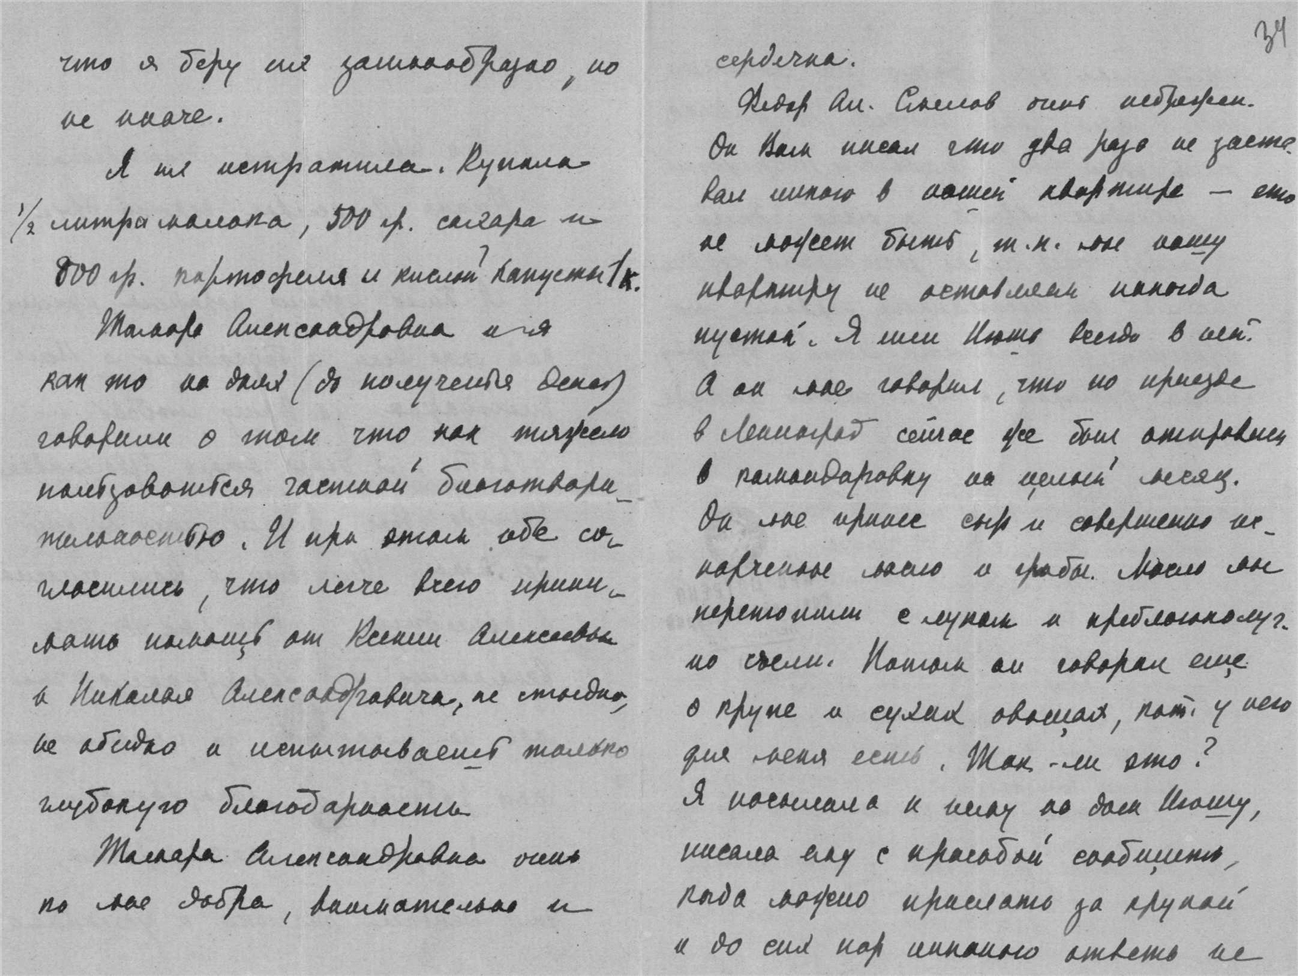 что я беру их заимообразно, но
не иначе.
Я их истратила. Купила
1/2 литра молока, 500 гр. сахара и
800 гр. картофеля и кислой капусты 1 к.
Тамара Александровна и я
как то на днях (до получения денег)
говорили о том что как тяжело
пользоваться частной благотвори-
тельностью. И при этом обе со-
гласились, что легче всего прини-
мать помощь от Ксении Алексеевны
и Николая Александровича, не стыдно,
не обидно и испытываешь только
глубокую благодарность
Тамара Александровна очень
ко мне добра, внимательна и
34
сердечна.
Федор Ал. очень небрежен.
Он Вам писал что два раза не заста-
вал никого в нашей квартире — это
не может быть, т.к. мы нашу
квартиру не оставляем никогда
пустой. Я или всегда в ней.
А он мне говорил, что по приезде
в Ленинград сейчас же был отправлен
в командировку на целый месяц.
Он мне принес сыр и совершенно ис-
порченное масло и грибы. Масло мы
перетопили с луком и преблагополуч-
но съели. Потом он говорил еще
о крупе и сухих овощах, кот. у него
для меня есть. Так-ли это?
Я посылала к нему на дом
писала ему с просьбой сообщить,
когда можно прислать за крупой
и до сих пор никакого ответа не